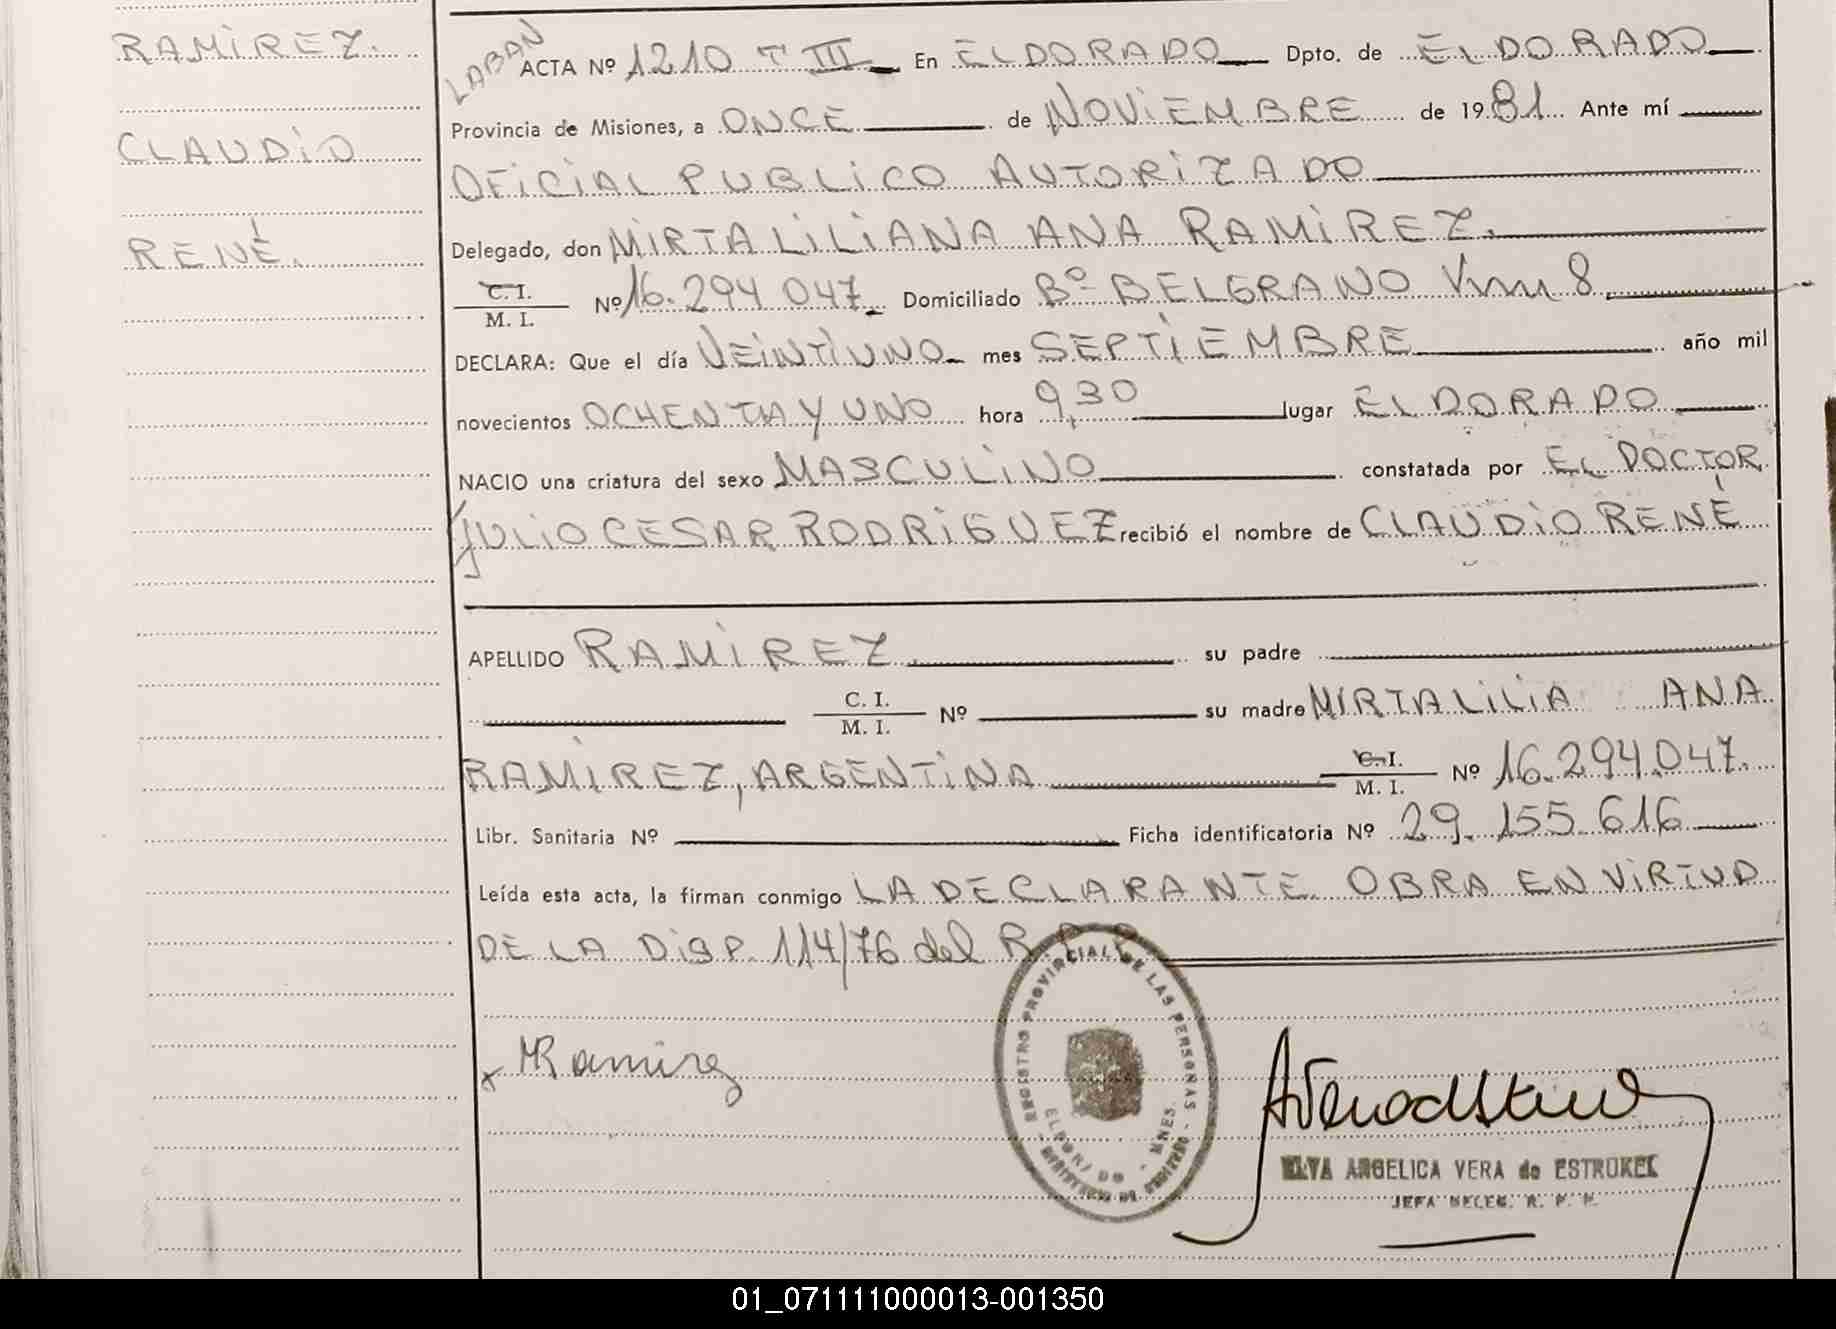 RAMIREZ.
CLAUDIO
RENÉ.
LABAN
ACTA Nº 1210 T III En ELDORADO Dpto. de ELDORADO
Provincia de Misiones, a ONCE de NOVIEMBRE de 1981 Ante mí
OFICIAL PUBLICO AUTORIZADO
Delegado, don MIRTA LILIANA ANA RAMIREZ.
C. I.
M. I. Nº 16.294.047 Domiciliado Bº BELGRANO Km 8
DECLARA: Que el día VEINTIUNO mes SEPTIEMBRE año mil
novecientos OCHENTA Y UNO hora 9,30 lugar ELDORADO
NACIO una criatura del sexo MASCULINO constatada por EL DOCTOR
JULIO CESAR RODRIGUEZ recibió el nombre de CLAUDIO RENÉ
APELLIDO RAMIREZ su padre
C. I.
M. I. Nº su madre MIRTA LILIA ANA
RAMIREZ, ARGENTINA C. I.
M. I. Nº 16.294.047.
Libr. Sanitaria Nº Ficha identificatoria Nº 29.155.616
Leída esta acta, la firman conmigo LA DECLARANTE. OBRA EN VIRTUD
DE LA DISP. 114/76 del R.P.P.
REGISTRO PROVINCIAL DE LAS PERSONAS
ELDORADO - MNES.
MINISTERIO DE GOBIERNO
x MRamirez
ELVA ANGELICA VERA de ESTRUKEL
JEFA DELEG. R. P. P.
01_071111000013-001350